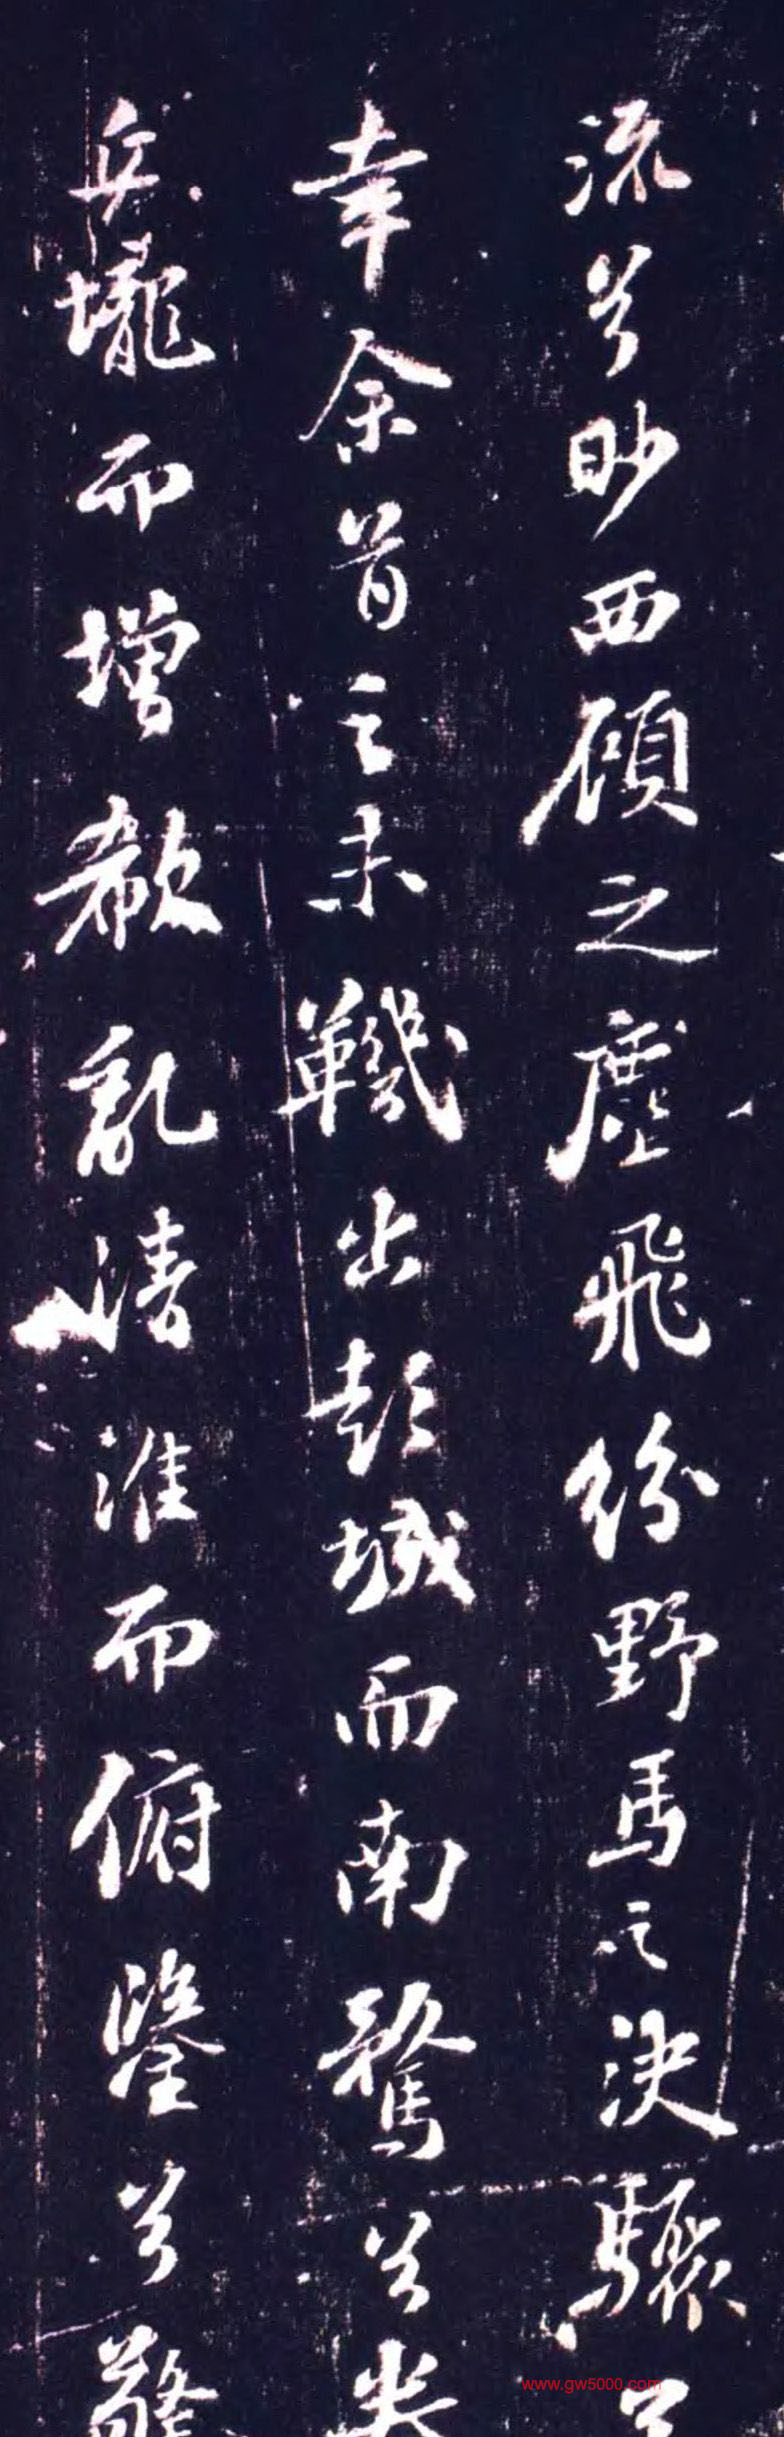 流兮眇西顧之塵飛紛野馬之決驟兮
幸余首之未鞿出彭城而南騖兮眷
丘壠而增欷亂清淮而俯鑒兮驚
www.gw5000.com